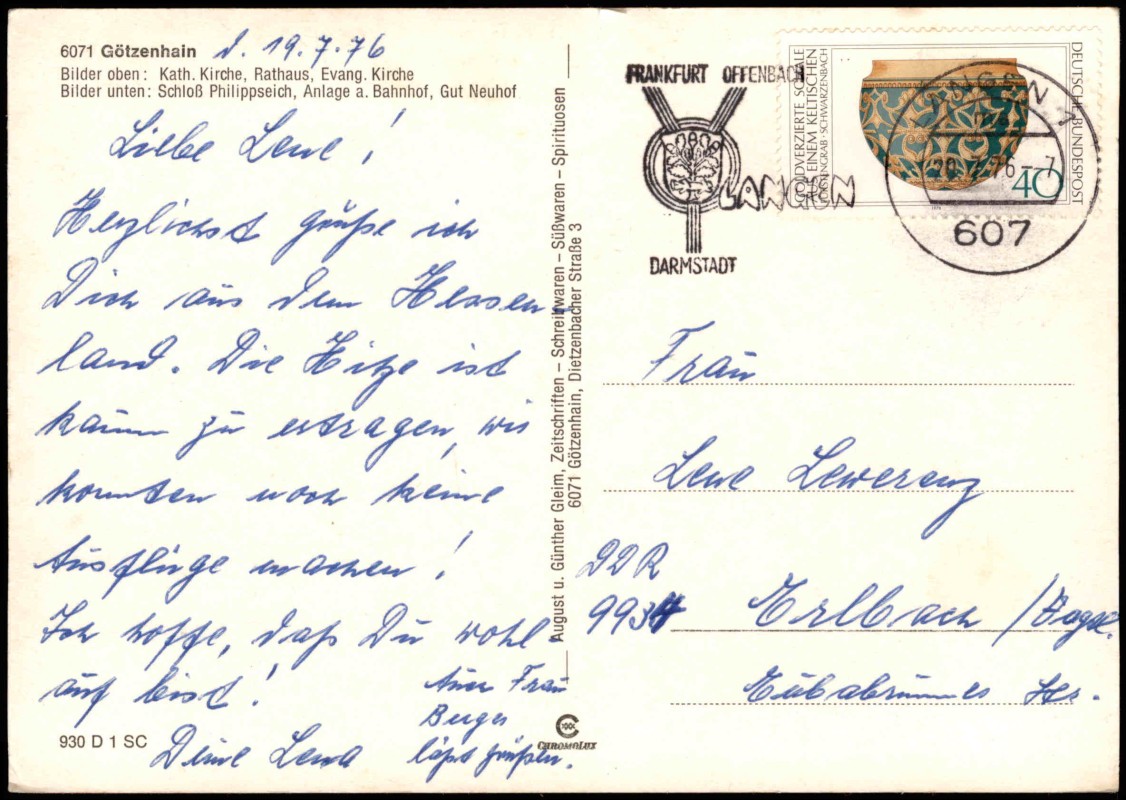 6071 Götzenhain d. 19.7.76
Bilder oben: Kath. Kirche, Rathaus, Evang. Kirche
Bilder unten: Schloß Philippseich, Anlage a. Bahnhof, Gut Neuhof
Liebe Lene!
Herzlichst grüße ich
Dich aus dem Hessen-
land. Die Hitze ist
kaum zu ertragen, wir
konnten noch keine
Ausflüge machen!
Ich hoffe, daß Du wohl
auf bist!
Deine Lena
Auch Frau
Berger
läßt grüßen.
930 D 1 SC
August u. Günther Gleim, Zeitschriften – Schreibwaren – Süßwaren – Spirituosen
6071 Götzenhain, Dietzenbacher Straße 3
CHROMOLUX
FRANKFURT OFFENBACH
LANGEN
DARMSTADT
GOLDVERZIERTE SCHALE
AUS EINEM KELTISCHEN
FÜRSTENGRAB · SCHWARZENBACH
DEUTSCHE BUNDESPOST
40
LANGEN 1
20.7.76-7
607
Frau
Lene Lewerenz
DDR
993
Erlbach /Vogtl.
Eubabrunnes Str.